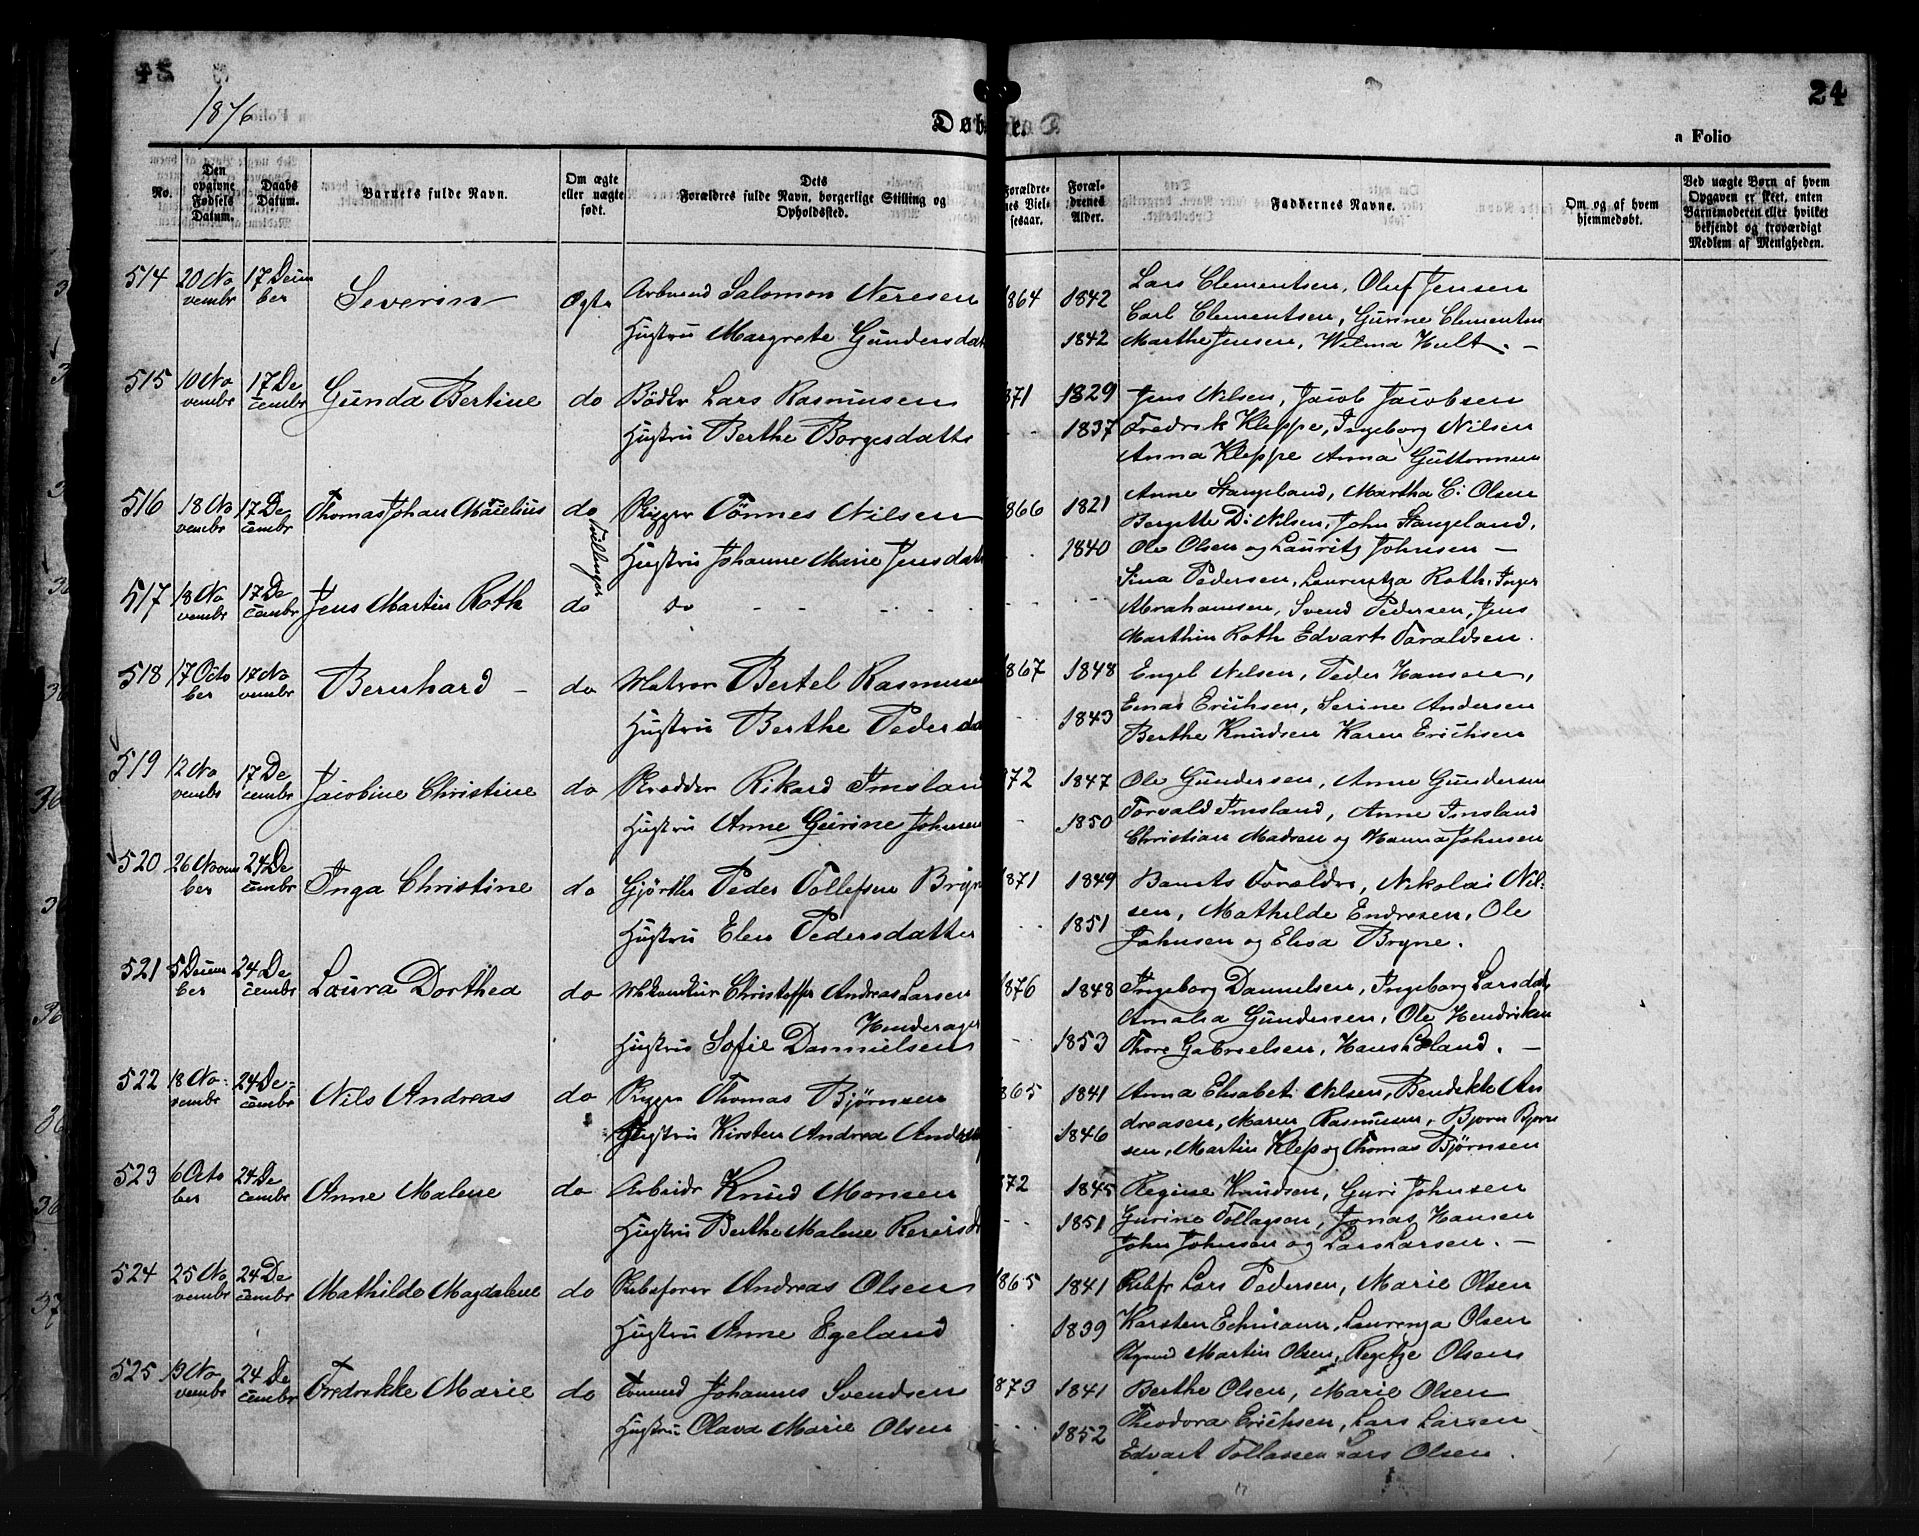 1876
Døbte.
24
a Folio
No.
Den opgivne Fødsels Datum.
Daabs Datum.
Barnets fulde Navn.
Om ægte eller uægte født.
Dets Forældres fulde Navn, borgerlige Stilling og Opholdsted.
Forældrenes Vielsesaar.
Forældrenes Alder.
Faddernes Navne.
Om og af hvem hjemmedøbt.
Ved uægte Børn af hvem Opgaven er skeet, enten Barnemoderen eller hvilket bekjendt og troværdigt Medlem af Menigheden.
514 20 November 17 December Severin Ægte Arbmand Salomon Neresen 1864 1842 Lars Clementsen, Oluf Jensen
Carl Clementsen, Gurine Clementsen
Hustru Margrete Gundersdatt 1842 Marthe Jensen, Wilma Hult. –
515 10 November 17 December Gunda Bertine do Bødker Lars Rasmusen 1871 1829 Jens Nilsen, Jacob Jacobsen
Hustru Berthe Borgesdatter 1837 Fredrik Kleppe, Ingeborg Nilsen
Anna Kleppe Anna Guttormsen
516 18 November 17 December Thomas Johan Marelius do Rigger Tönnes Nilsen 1866 1821 Anne Stangeland, Martha C. Olsen
Bergitte D. Nilsen, John Stangeland,
Tvillinger Hustru Johanne Marie Jensdatt 1840 Ole Olsen og Lauritz Johnsen –
517 18 November 17 December Jens Martin Roth do do Sina Pedersen, Laurentza Roth, Inger
Abrahamsen, Svend Pedersen, Jens
Marthin Roth Edvart Taraldsen.
518 17 October 17 November Bernhard – do Matros Bertel Rasmusen 1867 1848 Engel Nilsen, Peder Hansen,
Hustru Berthe Pedersda 1843 Enas Erichsen, Serine Andersen
Berthe Knudsen Karen Erichsen
519 12 November 17 December Jacobine Christine do Skrædder Rikard Imsland 1872 1847 Ole Gundersen, Anne Gundersen
Hustru Anne Gurine Johnsen 1850 Torvald Imsland, Anne Imsland
Christian Madsen og Hanna Johnsen
520 26 November 24 December Inga Christine do Gjörtler Peder Tollefsen Bryne 1871 1849 Barnets Forældre, Nikolai Nil-
Hustru Elen Pedersdatter 1851 sen, Mathilde Endresen, Ole
Johnsen og Elisa Bryne.
521 5 December 24 December Laura Dorthea do Christoffer Andreas Larsen 1876 1848 Ingeborg Danielsen, Ingeborg Larsdatt
Henderager Amalia Gundersen, Ole Hendriksen
Hustru Sofie Danielsen 1853 Thore Gabrielsen, Hans Løland. –
522 18 November 24 December Nils Andreas do Rigger Thomas Bjørnsen 1865 1841 Anna Elisabet Nilsen, Bendikte An
Hustru Kirsten Andrea Anders 1846 dreasen, Maren Rasmusen, Bjørn Bjørn
sen, Martin Klep og Thomas Bjørnsen
523 6 October 24 December Anne Malene do Arbeider Knud Monsen 1872 1845 Regine Knudsen, Guri Johnsen
Hustru Berthe Malene 1851 Gurine Tollagsen, Jonas Hansen
John Johnsen og Lars Larsen. –
524 25 November 24 December Mathilde Magdalene do Skibsfører Andreas Olsen 1865 1841 Skibf Lars Pedersen, Marie Olsen
Hustru Anne Egeland 1839 Karsten Echmann, Laurenza Olsen
Martin Olsen, Regitze Olsen
525 13 November 24 December Fredrikke Marie do Tømmd Johannes Svendsen 1873 1841 Berthe Olsen, Marie Olsen
Hustru Olava Marie Olsen 1852 Theodora Erichsen, Lars Larsen
Edvart Tollassen Lars Olsen.